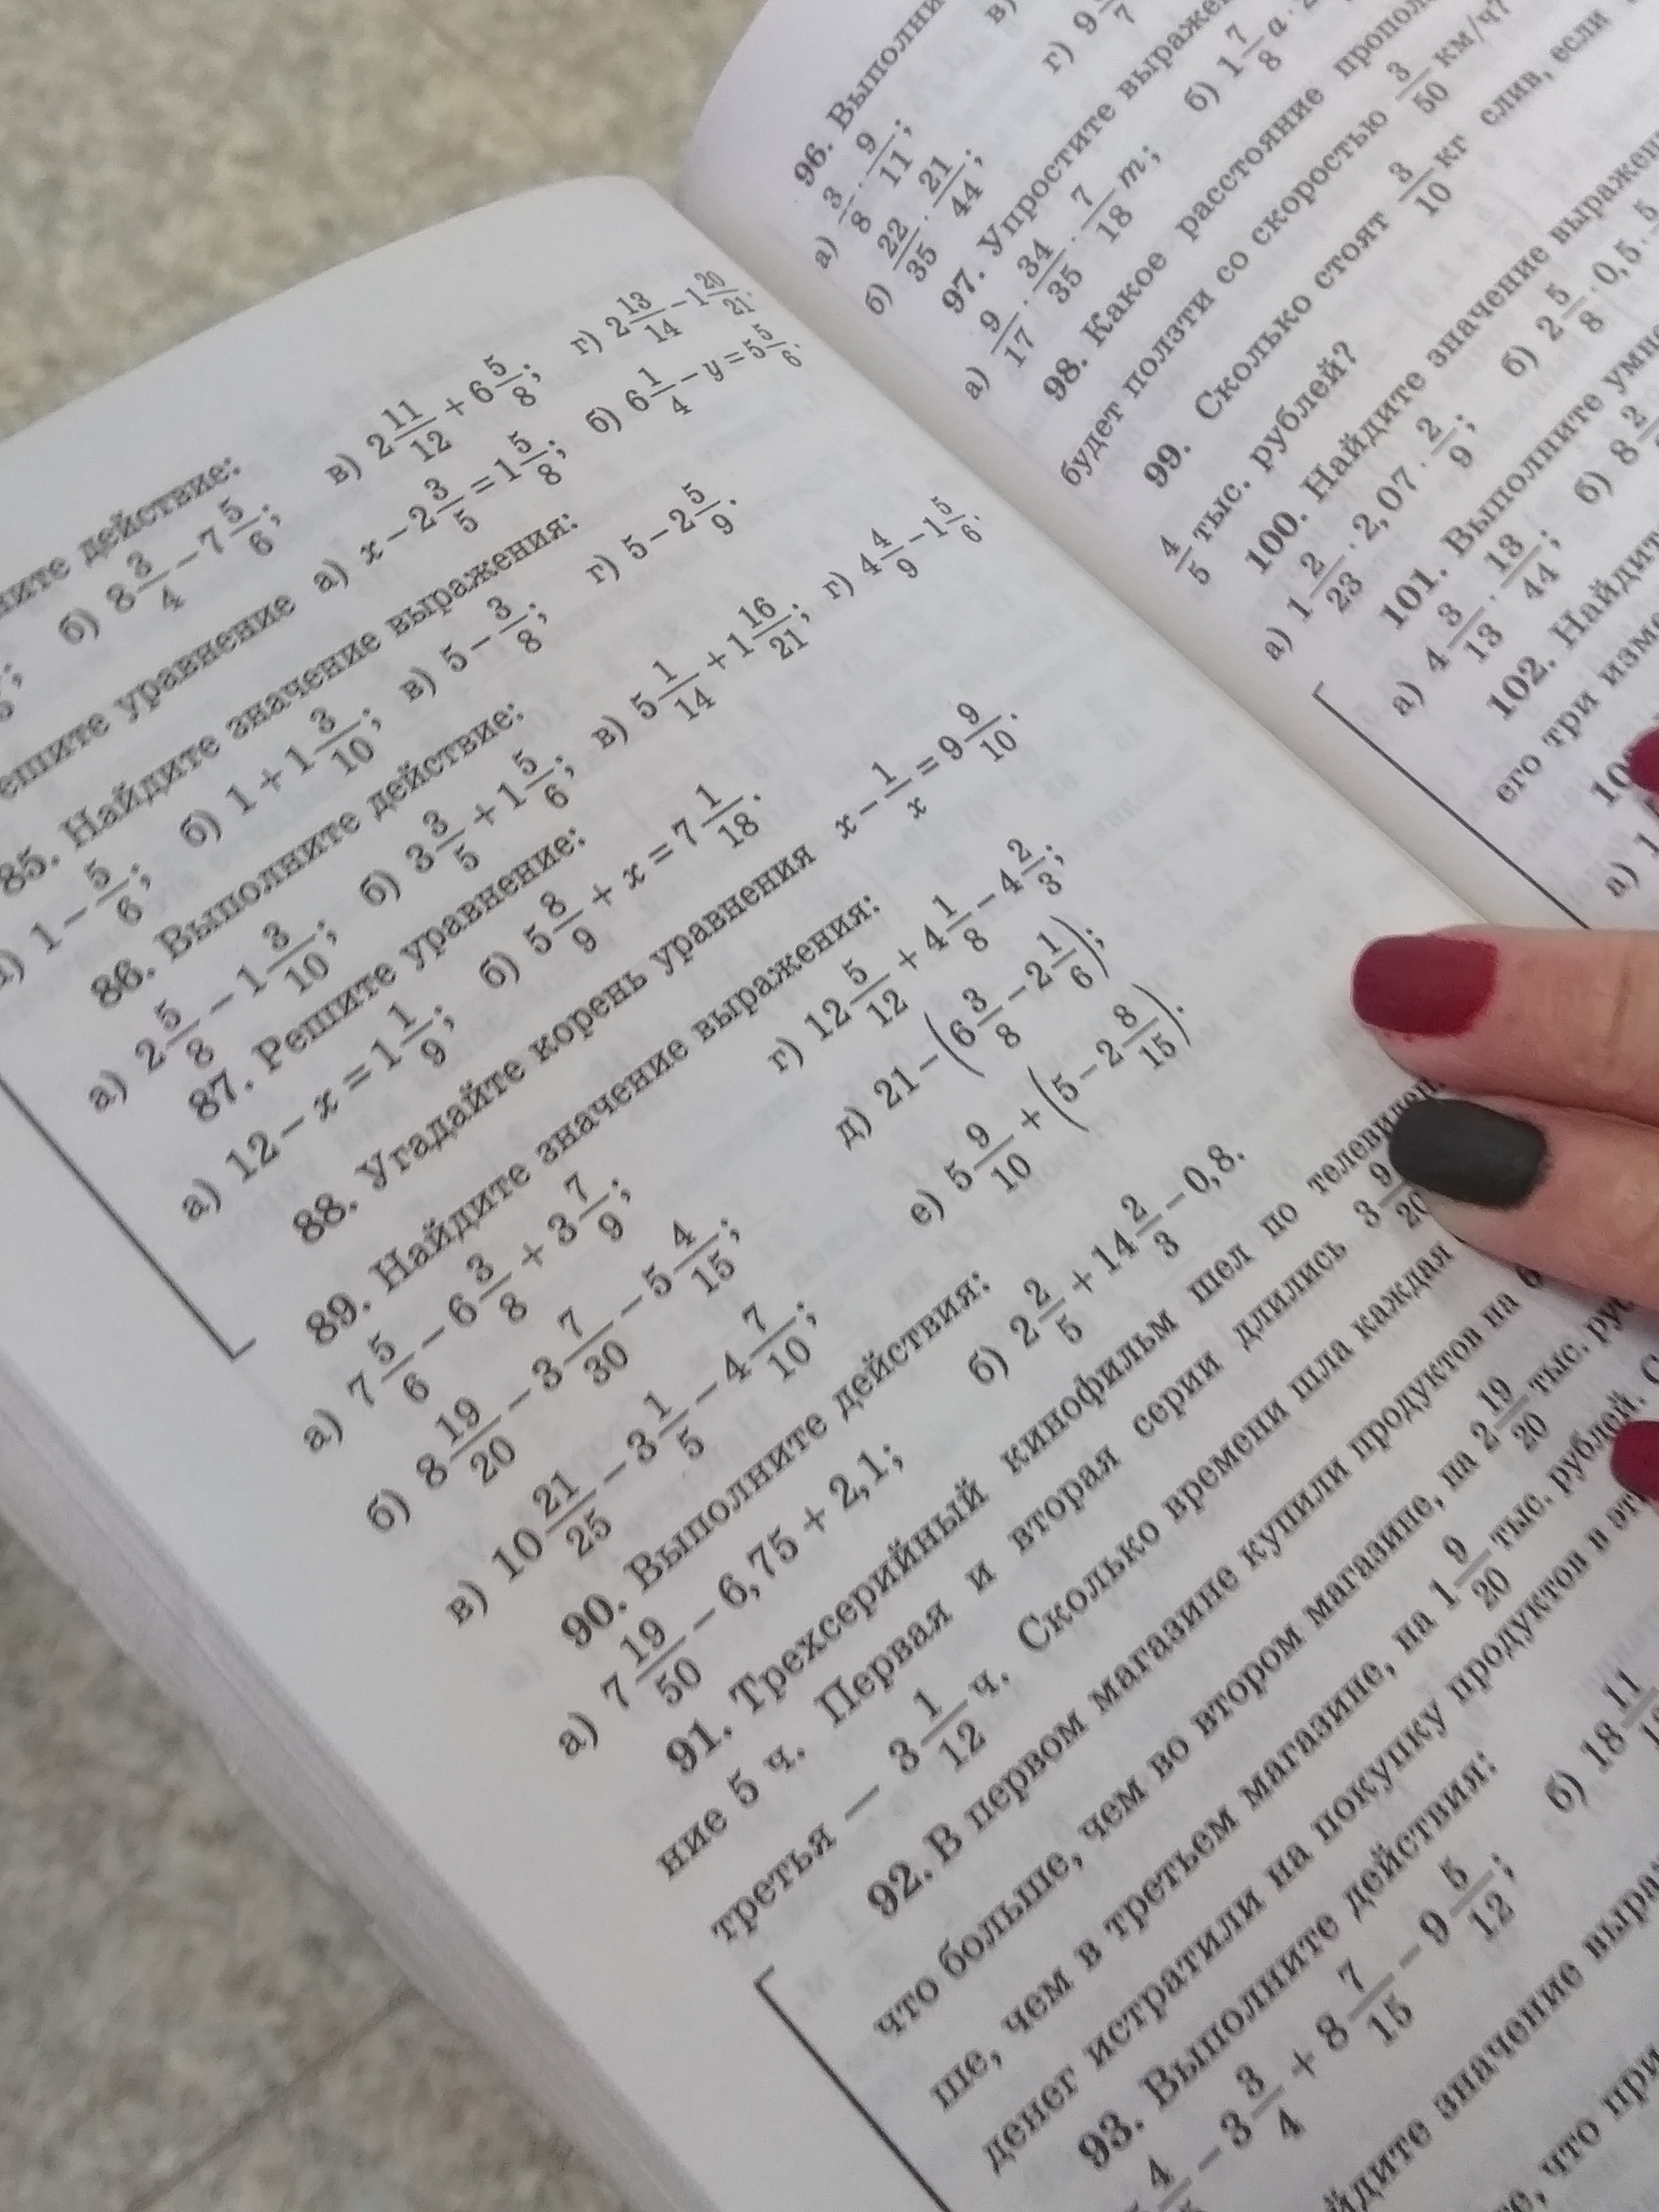 действие:
б) 8 3/4 − 7 5/6; в) 2 11/12 + 6 5/8; г) 2 13/14 − 1 20/21.
уравнение а) x − 2 3/5 = 1 5/8; б) 6 1/4 − y = 5 5/6.
85. Найдите значение выражения:
1 − 5/6; б) 1 + 1 3/10; в) 5 − 3/8; г) 5 − 2 5/9.
86. Выполните действие:
а) 2 5/8 − 1 3/10; б) 3 3/5 + 1 5/6; в) 5 1/14 + 1 16/21; г) 4 4/9 − 1 5/6.
87. Решите уравнение:
а) 12 − x = 1 1/9; б) 5 8/9 + x = 7 1/18.
88. Угадайте корень уравнения x − 1/x = 9 9/10.
89. Найдите значение выражения:
а) 7 5/6 − 6 3/8 + 3 7/9; г) 12 5/12 + 4 1/8 − 4 2/3;
б) 8 19/20 − 3 7/30 − 5 4/15; д) 21 − (6 3/8 − 2 1/6);
в) 10 21/25 − 3 1/5 − 4 7/10; е) 5 9/10 + (5 − 2 8/15).
90. Выполните действия:
а) 7 19/50 − 6,75 + 2,1; б) 2 2/5 + 14 2/3 − 0,8.
91. Трехсерийный кинофильм шел по
ние 5 ч. Первая и вторая серии длились 3 9/20
третья — 3 1/12 ч. Сколько времени шла каждая
92. В первом магазине купили продуктов на
что больше, чем во втором магазине, на 2 19/20 тыс.
ше, чем в третьем магазине, на 1 9/20 тыс. рублей.
денег истратили на покупку продуктов в
93. Выполните действия:
− 3 3/4 + 8 7/15 − 9 5/12; б) 18
значение
что при
96.
а) 3/8 · 9/11;
б) 22/35 · 21/44;
97. Упростите
а) 9/17 · 34/35 · 7/18 m; б) 1 7/8 a
98. Какое расстояние
будет ползти со скоростью 3/50 км/ч?
99. Сколько стоят 3/10 кг слив, если
4/5 тыс. рублей?
100. Найдите значение
а) 1 2/23 · 2,07 · 2/9; б) 2 5/8 · 0,5 ·
101. Выполните
а) 4 3/13 · 13/44; б) 8
102. Найдите
его три
а)